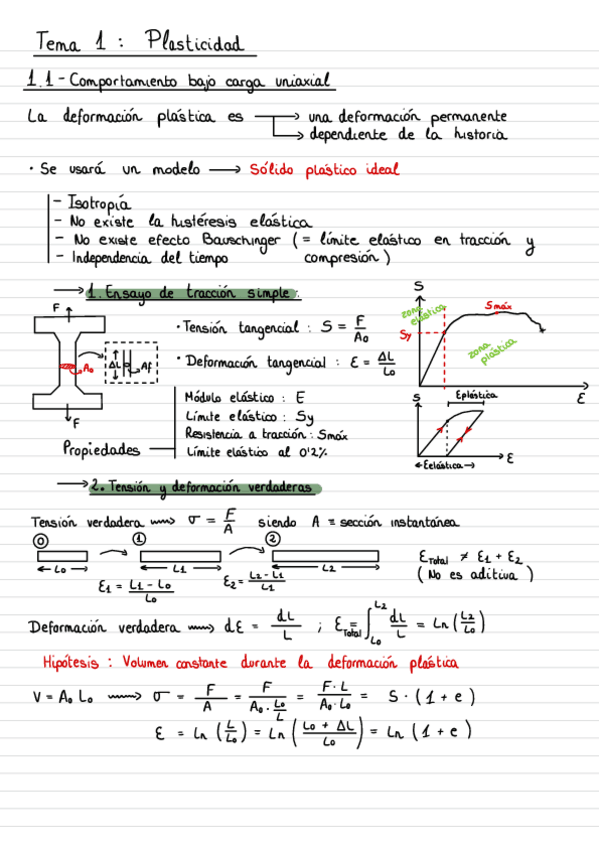 Tema 1 : Plasticidad
1.1 - Comportamiento bajo carga uniaxial
La deformación plástica es → una deformación permanente
→ dependiente de la historia
· Se usará un modelo → Sólido plástico ideal
- Isotropía
- No existe la histéresis elástica
- No existe efecto Bauschinger ( = límite elástico en tracción y
- Independencia del tiempo compresión )
→ 1. Ensayo de tracción simple :
F
A₀
ΔL
Af
F
· Tensión tangencial : S = F/A₀
· Deformación tangencial : ε = ΔL/L₀
Propiedades
Módulo elástico : E
Límite elástico : Sy
Resistencia a tracción : Smáx
Límite elástico al 0'2%
S
zona elástica
Smáx
Sy
zona plástica
ε
S
Eplástica
←Eelástica→
ε
→ 2. Tensión y deformación verdaderas
Tensión verdadera → σ = F/A siendo A ≡ sección instantánea
0 1 2
← L₀ → ← L₁ → ← L₂ →
ε₁ = L₁ - L₀ / L₀ ε₂ = L₂ - L₁ / L₁
εTotal ≠ ε₁ + ε₂
( No es aditiva )
Deformación verdadera → dε = dL/L ; εTotal = ∫_L₀^L₂ dL/L = Ln (L₂/L₀)
Hipótesis : Volumen constante durante la deformación plástica
V = A₀ L₀ → σ = F/A = F/(A₀ · L₀/L) = F · L/(A₀ · L₀) = S · ( 1 + e )
ε = Ln (L/L₀) = Ln ((L₀ + ΔL)/L₀) = Ln ( 1 + e )